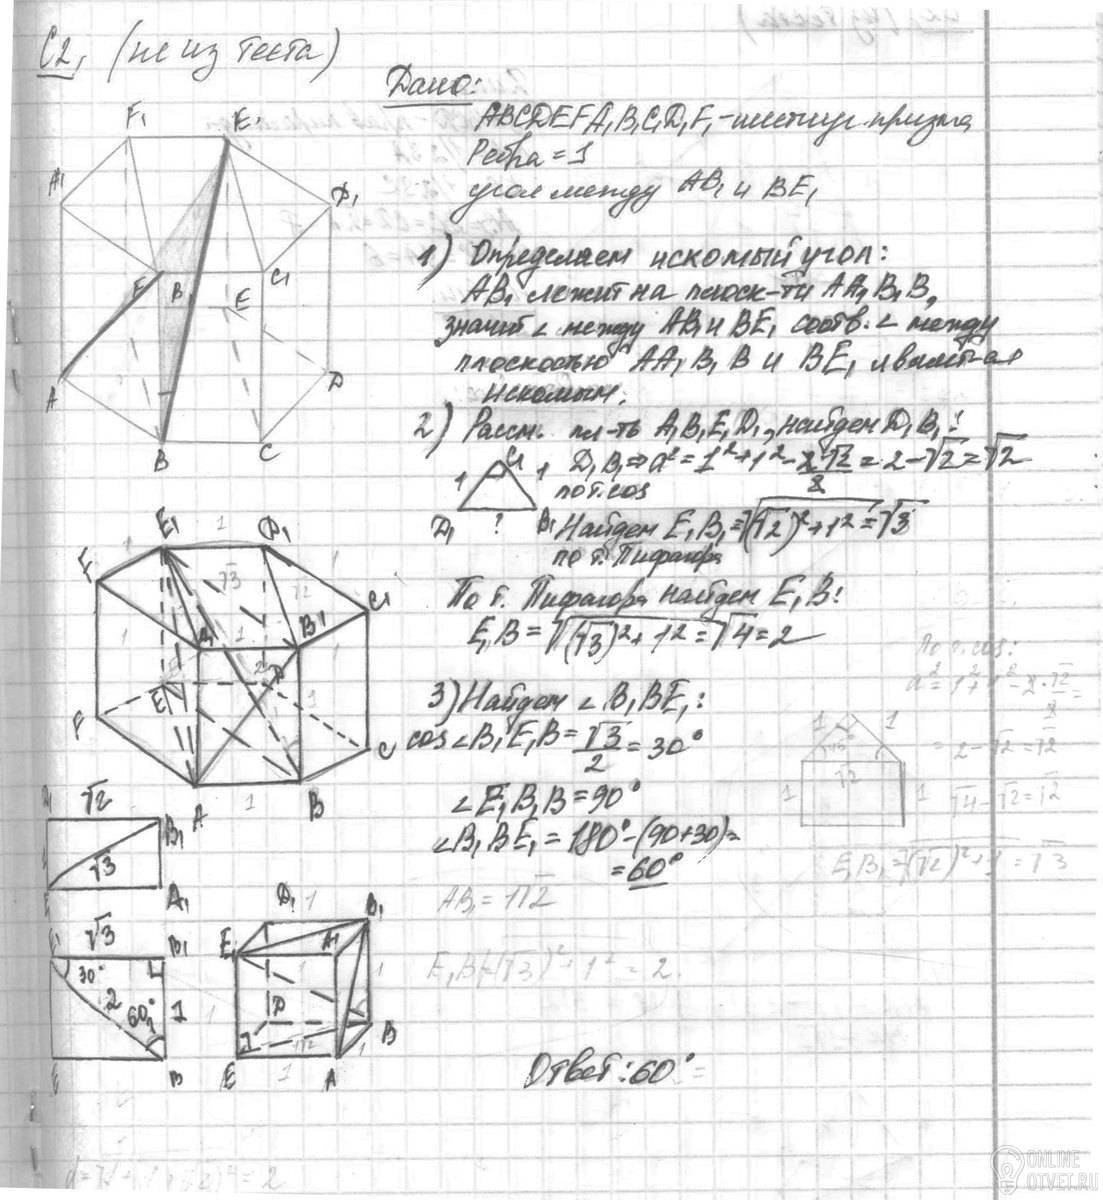 С2, (не из теста)
Дано:
ABCDEFA₁B₁C₁D₁F₁ - шестиуг. призма
Ребра = 1
угол между AB₁ и BE₁
1) Определяем искомый угол:
AB₁ лежит на плоск-ти AA₁B₁B,
значит ∠ между AB₁ и BE₁ соотв. ∠ между
плоскостью AA₁B₁B и BE₁ является
искомым.
2) Рассм. пл-ть A₁B₁E₁D₁, найдем D₁B₁:
D₁B₁ ⇒ a² = 1² + 1² - 2√2/2 = 2 - √2 = √2
по т. cos
Найдем E₁B₁ = √((√2)² + 1²) = √3
по т. Пифагора
По т. Пифагора найдем E₁B:
E₁B = √((√3)² + 1²) = √4 = 2
3) Найдем ∠B₁BE₁:
cos∠B₁E₁B = √3/2 = 30°
∠E₁B₁B = 90°
∠B₁BE₁ = 180° - (90+30) =
= 60°
AB₁ = 1√2
E₁B = (√3)² + 1² = 2
Ответ: 60°
F₁ E₁
A₁ D₁
F B₁ C₁
E
A D
B C
E₁ 1 D₁
F √3 √2 C₁
A₁ 1 B₁
E D
F C
A 1 B
√2
D₁ B₁
√3
E A₁
√3
E₁ B₁
30° 2 60° 1
B
D₁ 1 B₁
E₁ A₁
D B
E 1 A
1 C₁ 1
D₁ ? B₁
По т. cos:
a² = 1² + 1² - 2·√2/2 =
= 2 - √2 = √2
√4 - √2 = √2
E₁B₁ = √((√2)² + 1) = √3
1 1
√2
1 1
ONLINE
OTVET.RU